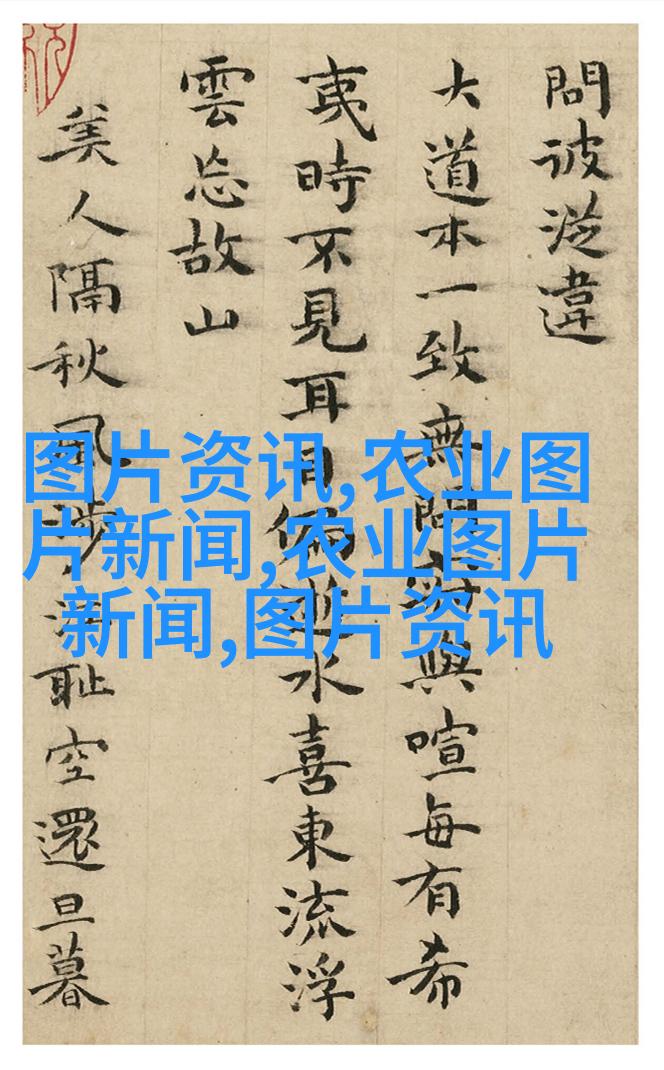 問彼從違
大道本一致無問寂與喧每有希
夷時不見耳目偏逝水喜東流浮
雲忘故山
美人隔秋風涉江耻空還旦暮
图片资讯,农业图
片新闻,农业图片
新闻,图片资讯